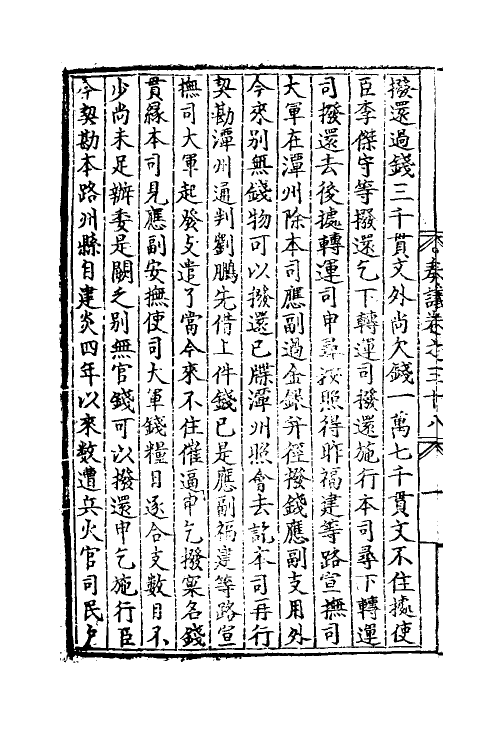 奏議卷之三十八
一
撥還過錢三千貫文外尚欠錢一萬七千貫文不住據使
臣李傑字等撥還乞下轉運司撥還施行本司尋下轉運
司撥還去後據轉運司申尋按照得昨福建等路宣撫司
大軍在潭州除本司應副過金銀并徑撥錢應副支用外
今來別無錢物可以撥還已牒潭州照會去訖本司再行
契勘潭州通判劉鵬先借上件錢已是應副福建等路宣
撫司大軍起發支遣了當今來不住催逼申乞撥窠名錢
貫緣本司見應副安撫使司大軍錢糧日逐合支數目不
少尚未足辦委是闕乏別無官錢可以撥還申乞施行臣
今契勘本路州縣自建炎四年以來數遭兵火官司民戶